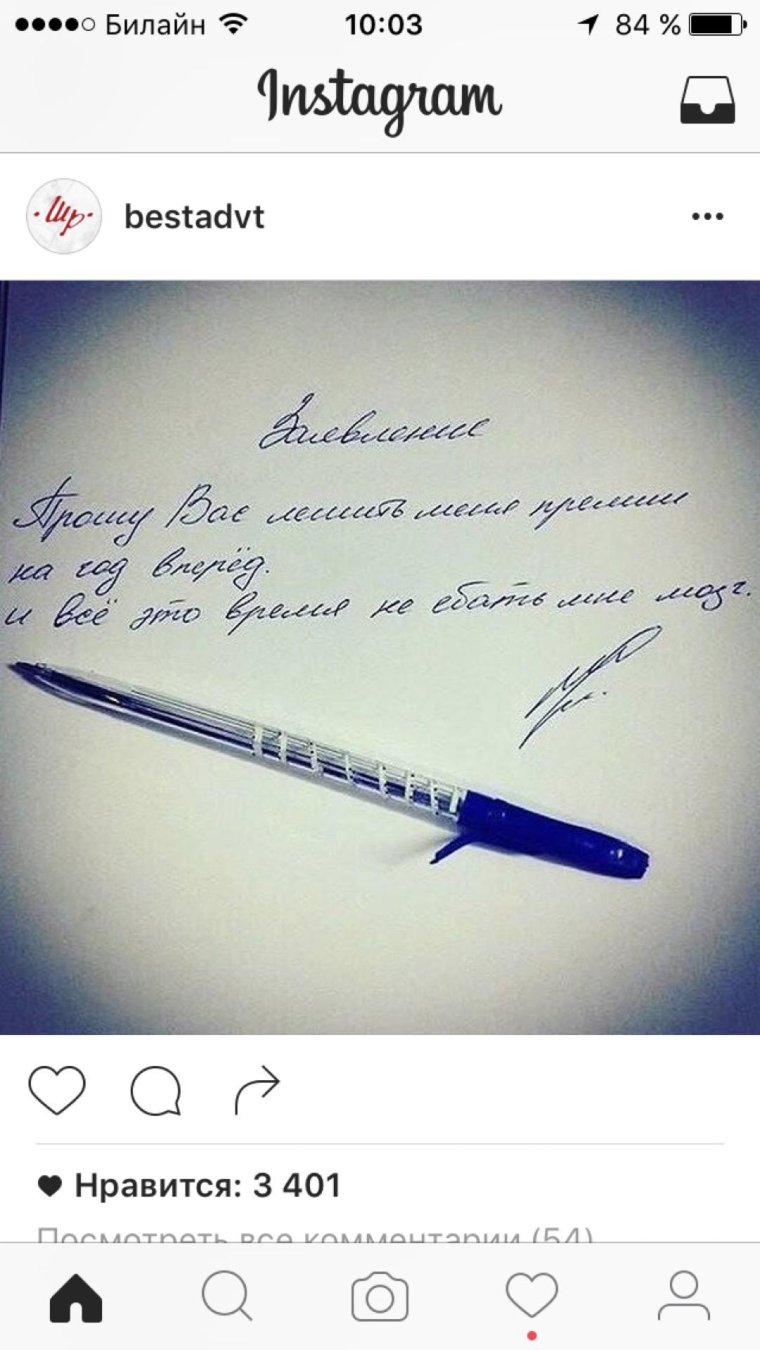 Билайн 10:03 84 %
Instagram
·Шр·
bestadvt
Заявление
Прошу Вас лишить меня премии
на год вперёд.
и всё это время не ебать мне мозг.
Нравится: 3 401
Посмотреть все комментарии (54)